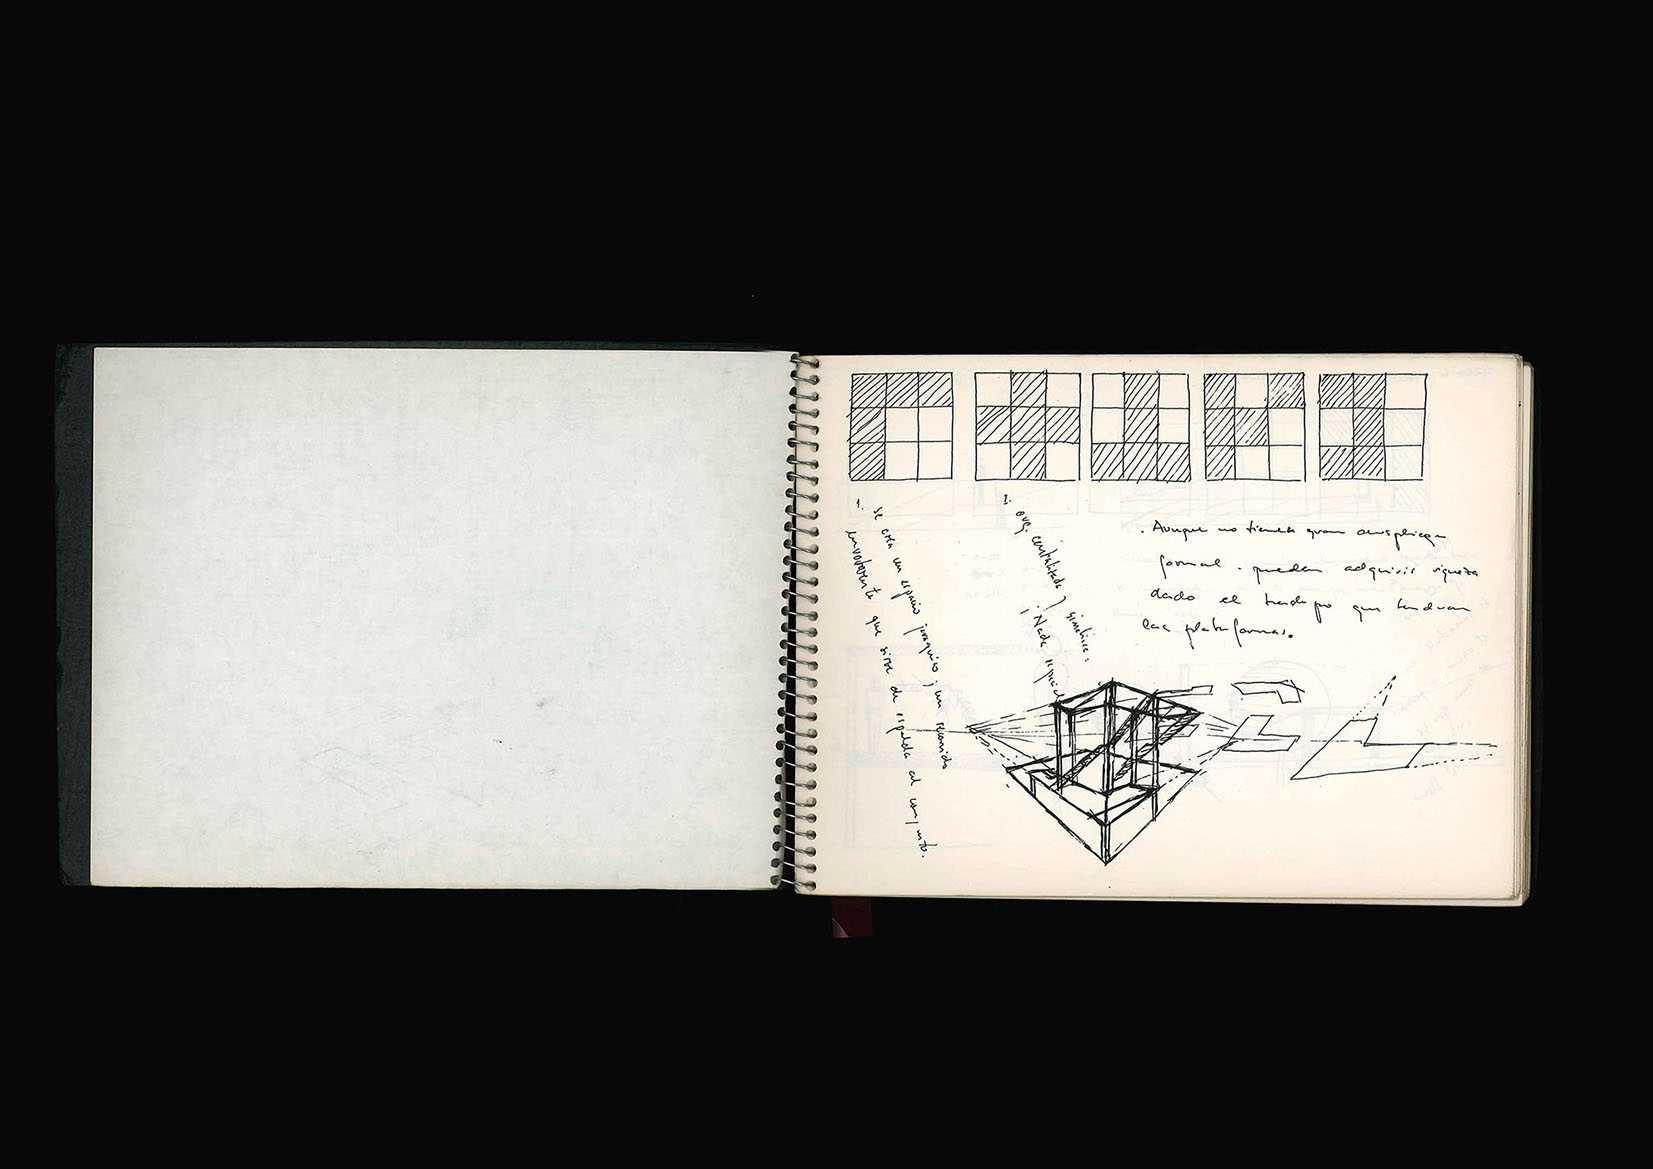 1. se crea un espacio jerarquico; un recorrido
envolvente que sirve de espalda al conjunto.
2. org. centralizada y simétrica:
¡Nada
. Aunque no tienen gran despliegue
formal. pueden adquirir riqueza
dado el que tendran
las plataformas.